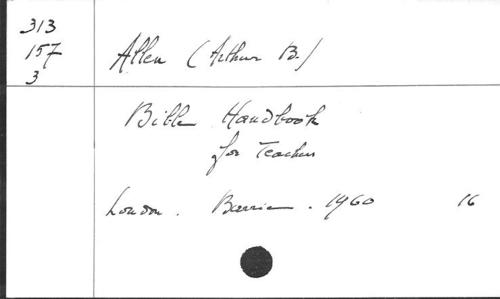 313
157
3
Allen (Arthur B.)
Bible Handbook
for Teachers
London. Barrie. 1960 16